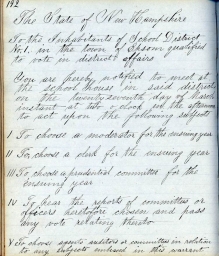 192
The State of New Hampshire
To the Inhabitants of School District
No. 1. in the town of Epsom qualified
to vote in district affairs
You are hereby notified to meet at
the school house in said district
on the twenty seventh day of March
instant at two o clock in the afternoon
to act upon the following subjects
I To choose a moderator for the ensuing year
II To choose a clerk for the ensuing year
III To choose a prudential committee for the
ensuing year
IV To hear the reports of committees or
officers heretofore chosen and pass
any vote relating thereto
V To choose agents auditors or committees in relation
to any subjects embraced in this warrant